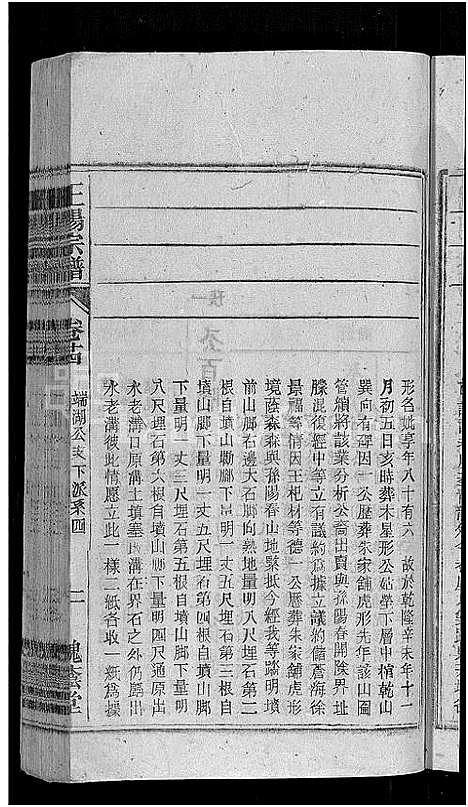 形名妣享年八十有六 故於乾隆辛未年十一
月初五日亥時葬木星形公崂塋下層中棺乾山
巽向有碑因一公歷葬朱家舖虎形先年該山圖
管續將該業分析公裔出賣與孫陽春開陳界址
朦混後經中等立有議約為據立議約儲詹海徐
景福等情因王杞材等德一公歷葬朱家舖虎形
境蔭森森與孫陽春山地緊抵今經我等踏明墳
前山脚石邊大石脚向熟地量明八尺埋石第二
根自墳山脚脚下量明一丈五尺埋石第三根自
墳山脚下量明一丈五尺埋石第四根自墳山脚
下量明一丈三尺埋石第五根自墳山脚下量明
八尺埋石第六根自墳山脚下量明四尺通原出
水老溝口原溝土填塞 溝在界石之外仍歸出
水老溝彼此情應立此一樣二紙各收一紙為據
王陽宗譜
卷廿四
端湖公支下派系四
二
槐蔭堂